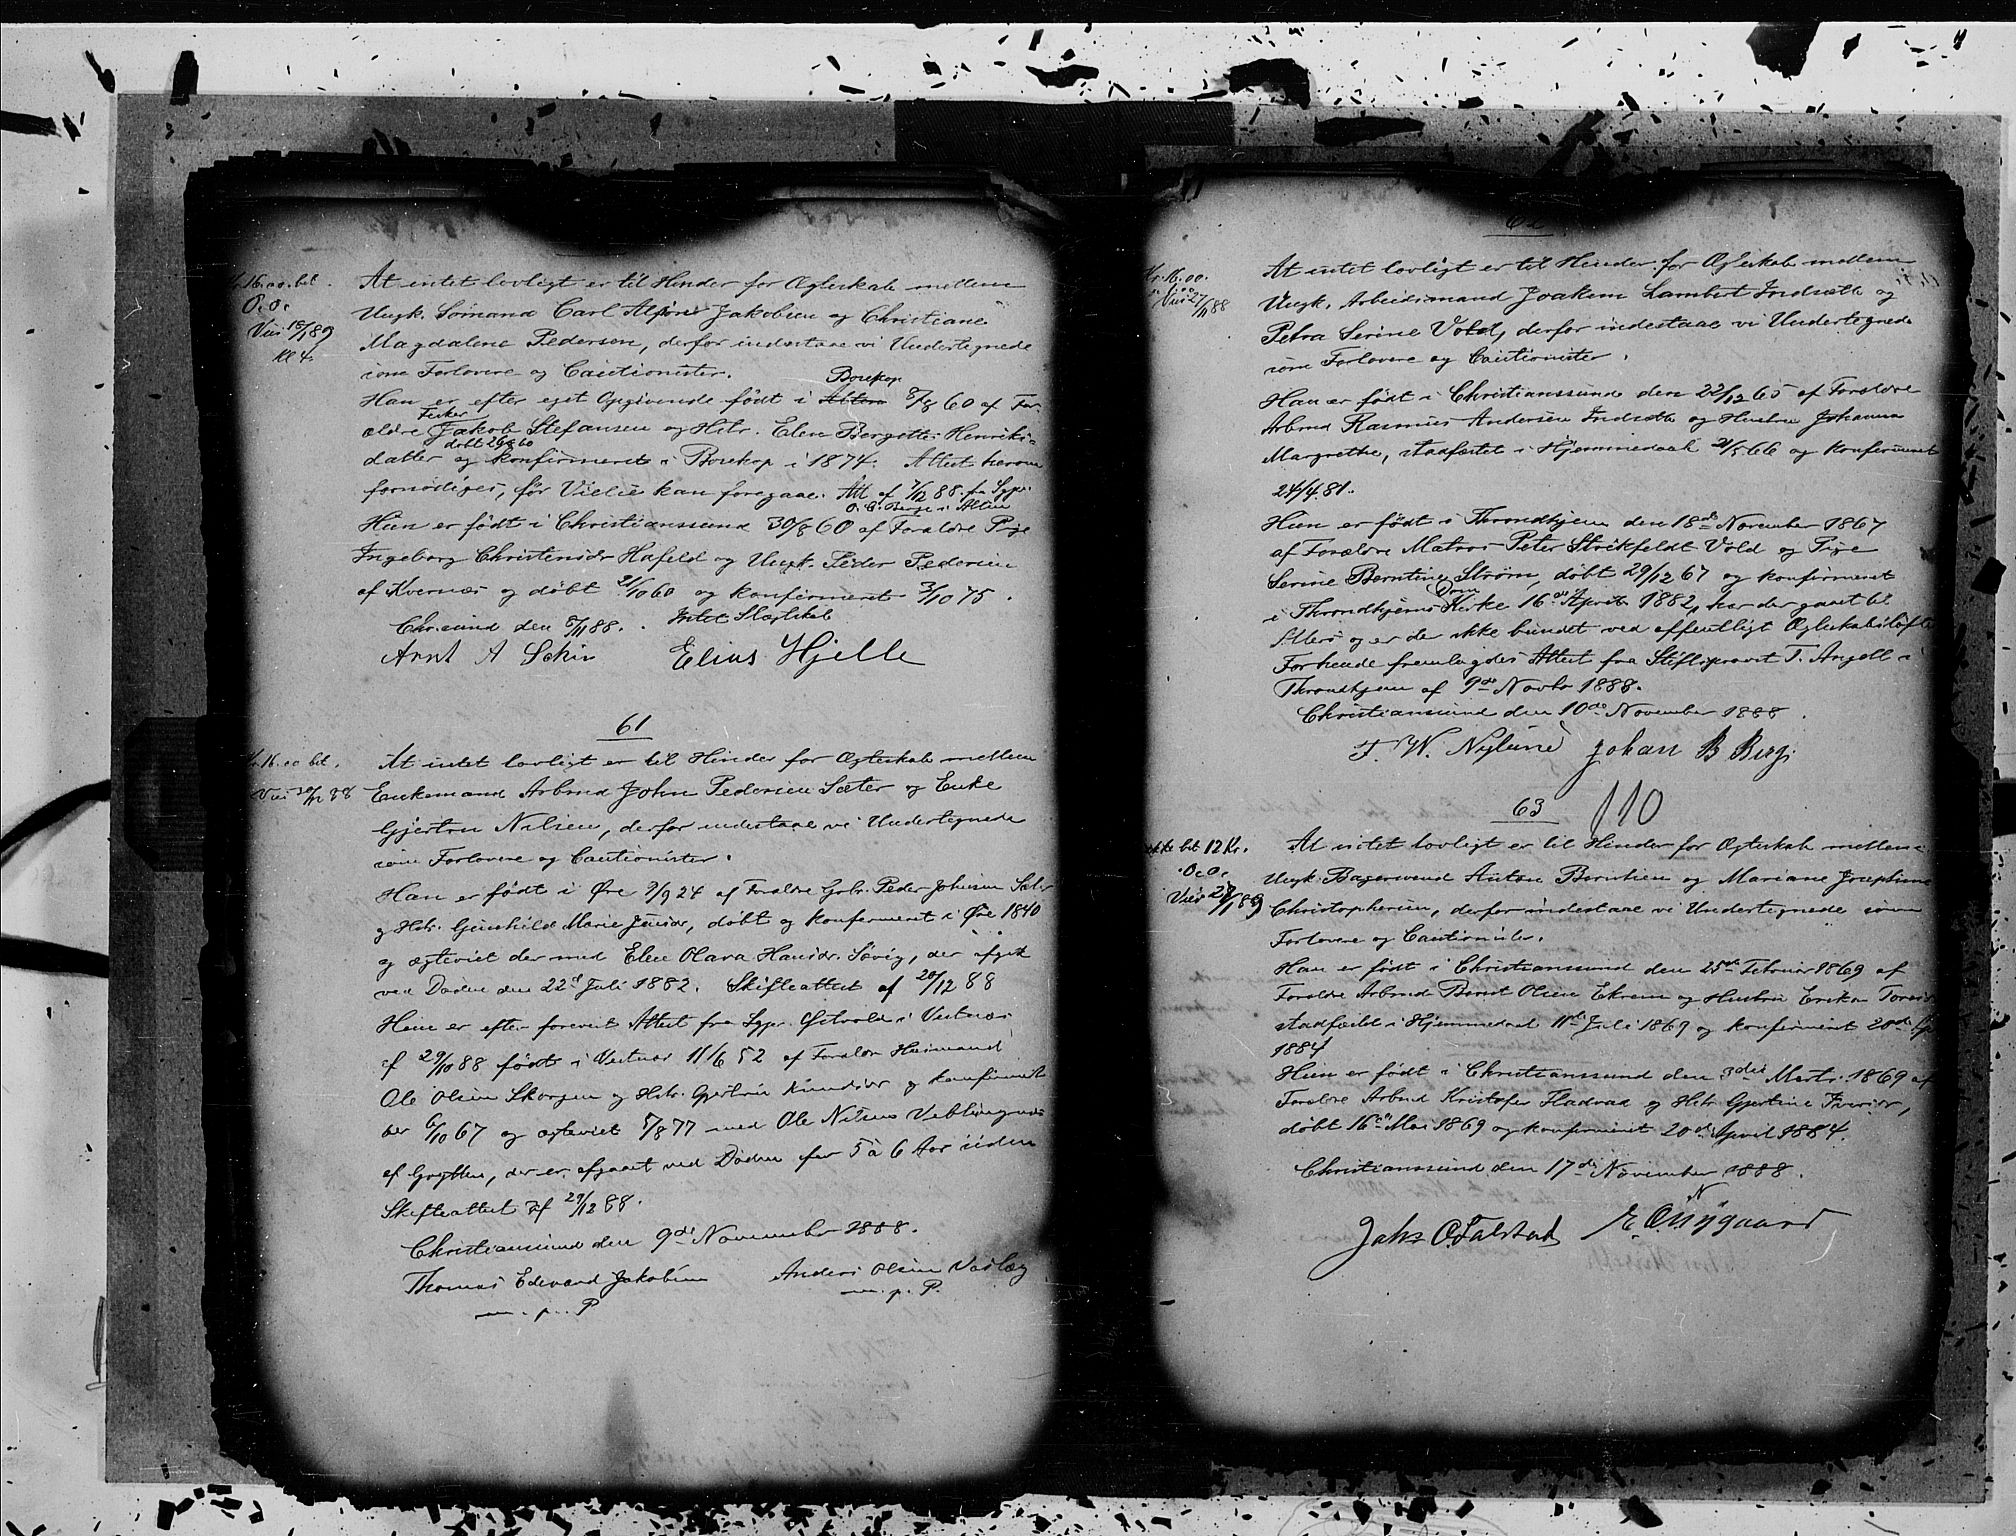 Kr. 16.00 bet.
O. O.
Viet 15/1 89
Kl 4
At intet lovligt er til Hinder for Ægteskab mellem
Ungk. Sømand Carl Jakobsen og Christiane
Magdalena Pedersen, derfor indestaae vi Undertegnede
som Forlovere og Cautionister.
Bosekop
Han er efter eget Opgivende født i Alten 8/8 60 af For-
Fisker
ældre Jakob Stefansen og Hstr. Elen Bergitte Henriks-
døbt 26/8 60
datter og konfirmeret i Bosekop i 1874. Attest herom
fornødiges, før Vielse kan foregaae. Att. af 7/12 88 fra Sgpr.
O. C. Berge i Alten
Hun er født i Christianssund 30/8 60 af Forældre Pige
Ingeborg Christensdr Hafeld og Ungk. Peder Pedersen
af Kvernes og døbt 21/10 60 og konfirmeret 3/10 75.
Chr.sund den 8/11 88. Intet Slægtskab
Arnt A Elias Hjelle
61
Kr. 16.00 bet.
Viet 30/12 88
At intet lovligt er til Hinder for Ægteskab mellem
Enkemand Arbmd John Pedersen Sæter og Enke
Gjertru Nilsen, derfor indestaae vi Undertegnede
som Forlovere og Cautionister.
Han er født i Øre 9/9 24 af Forældre Gbr. Peder Johnsen Sæter
og Hstr. Gunhild Marie Jensdr, døbt og konfirmeret i Øre 1840
og ægteviet der med Elen Olava Hansdr. Søvig, der afgik
ved Døden den 22de Juli 1882. Skifteattest af 20/12 88
Hun er efter forevist Attest fra Sgpr. i Vestnæs
af 29/10 88 født i Vestnæs 11/6 52 af Forældre Husmand
Ole Olsen Skorgen og Hstr. Gjertru Knudsdr og konfirmeret
der 6/10 67 og ægteviet 5/8 77 med Ole Nilsen Veblungsnes
af Grytten, der er afgaaet ved Døden for 5 à 6 Aar siden
Skifteattest af 29/12 88.
Christianssund den 9de November 1888.
Thomas Edevard Jakobsen Anders Olsen
m. p. P m. p. P.
62
Kr. 16.00.
Viet 27/11 88
At intet lovligt er til Hinder for Ægteskab mellem
Ungk. Arbeidsmand Joakim Lambert Indsæth og
Petra Serine Vold, derfor indestaae vi Undertegnede
som Forlovere og Cautionister.
Han er født i Christianssund den 22/12 65 af Forældre
Arbmd Rasmus Andersen Indsæth og Hustru Johanna
Margrethe, stadfæstet i Hjemmedaab 21/5 66 og konfirmeret
24/4 81.
Hun er født i Throndhjem den 18de November 1867
af Forældre Matros Peter Strikfeldt Vold og Pige
Serine Berntine Strøm, døbt 29/12 67 og konfirmeret
i Throndhjems Dom Kirke 16de April 1882, har der gaaet til
Alters og er der ikke bundet ved offentligt Ægteskabsløfte
Forhende fremlagdes Attest fra Stiftsprovst T. Angell i
Throndhjem af 9de Novbr 1888.
Christianssund den 10de November 1888.
T. W. Nylund Johan B Berg
63 110
ikke bet 12 Kr.
O. O.
At intet lovligt er til Hinder for Ægteskab mellem
Ungk. Bagersvend Anton Berntsen og Mariane Josephine
Christophersen, derfor indestaae vi Undertegnede som
Forlovere og Cautionister.
Han er født i Christianssund den 25de Februar 1869 af
Forældre Arbmd Bernt Olsen Ekrem og Hustru Erika
stadfæstet i Hjemmedaab 11de Juli 1869 og konfirmeret 20de
1884
Hun er født i Christianssund den 3die Marts 1869 af
Forældre Arbmd Kristofer Fladvad og Hstr Gjertine Iversdr,
døbt 16de Mai 1869 og konfirmeret 20de April 1884.
Christianssund den 17de November 1888.
Jahs O Falstad